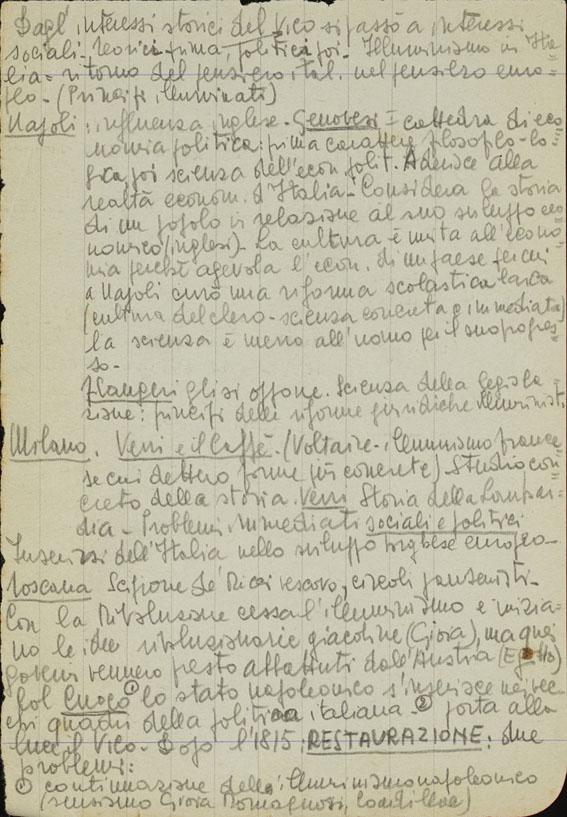 Dagl'interessi storici del Vico si passò a interessi
sociali - teorici prima, politici poi - Illuminismo in Ita=
lia = ritorno del pensiero ital. nel pensiero euro=
peo - (Principi illuminati)
Napoli: influenza inglese - Genovesi I cattedra di eco
nomia politica: prima carattere filosofico-lo=
gico poi scienza dell'econ. polit. Aderisce alla
realtà econom. d'Italia - Considera la storia
di un popolo in relazione al suo sviluppo eco
nomico (inglesi) - La cultura è unita all'econo
mia perché agevola l'econ. di un paese per cui
a Napoli curò una riforma scolastica laica
(cultura del clero - scienza concreta e immediata)
la scienza è mezzo all'uomo per il suo progres=
so -
Filangeri gli si oppone. Scienza della legisla=
zione: principi delle riforme giuridiche illuministi
Milano. Verri e il Caffè. (Voltaire - illuminismo france
se cui dettero forme più concrete) - Studio con
creto della storia. Verri Storia della Lombar=
dia - Problemi immediati sociali e politici
Inserirsi dell'Italia nello sviluppo europeo -
Toscana Scipione de' Ricci vescovo, circoli giansenisti -
Con la Rivoluzione cessa l'illuminismo e inizia=
no le idee rivoluzionarie giacobine (Gioia), ma quei
governi vennero presto abbattuti dall'Austria
Col Cuoco ① lo stato napoleonico s'inserisce nei vec
chi quadri della politica italiana - ② porta alla
luce il Vico - Dopo l'1815: RESTAURAZIONE: due
problemi:
① continuazione della illuminismo napoleonico
(sensismo Gioia Romagnosi, Condillac)